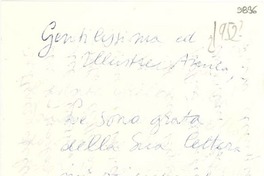 3886
1952?
Gentilissima ed
Illustre Amica
Le sono grata
della Sua lettera
mi